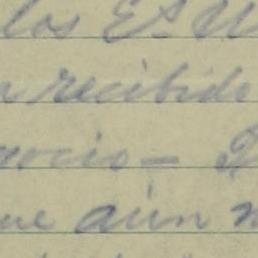 los Es. U
recibido
ocio -
ue aún